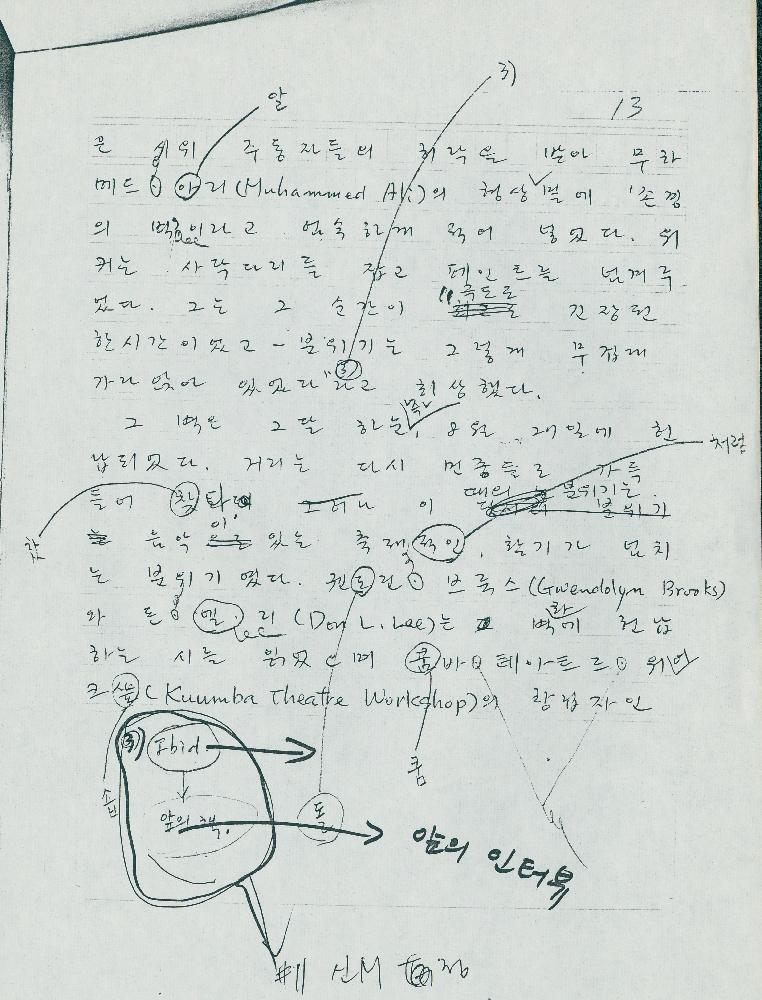 3)
알
13
은 시위 주동자들의 허락을 받아 무하
메드 아리(Muhammed Ali)의 형상 밑에 '손찜
의 벽'이라고 엄숙하게 적어 넣었다. 워
커는 사닥다리를 잡고 페인트를 넘겨주
었다. 그는 그 순간이 "극도로 긴장된
한시간이었고 - 분위기는 그렇게 무겁게
가라앉아 있었다" 3) 라고 회상했다.
그 벽은 그달 하순, 즉 8월 27일에 헌
납되었다. 거리는 다시 민중들로 가득
처럼
들어 찼다. 그러나 이 때의 분위기는
찼
음악이 있는 축제적인, 활기가 넘치
는 분위기였다. 권도린 브룩스(Gwendolyn Brooks)
와 돈 엘 리(Don L. Lee)는 벽화에 헌납
하는 시를 읽었으며 쿰바 테아트르 워
크샵(Kuumba Theatre Workshop)의 창립자인
3) Ibid
쿰
숍
앞의 책.
돌
앞의 인터뷰